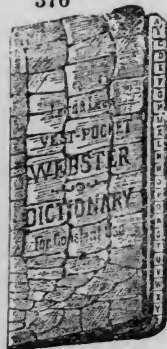 Laird & Lee's
VEST-POCKET
WEBSTER
DICTIONARY
For Constant Use